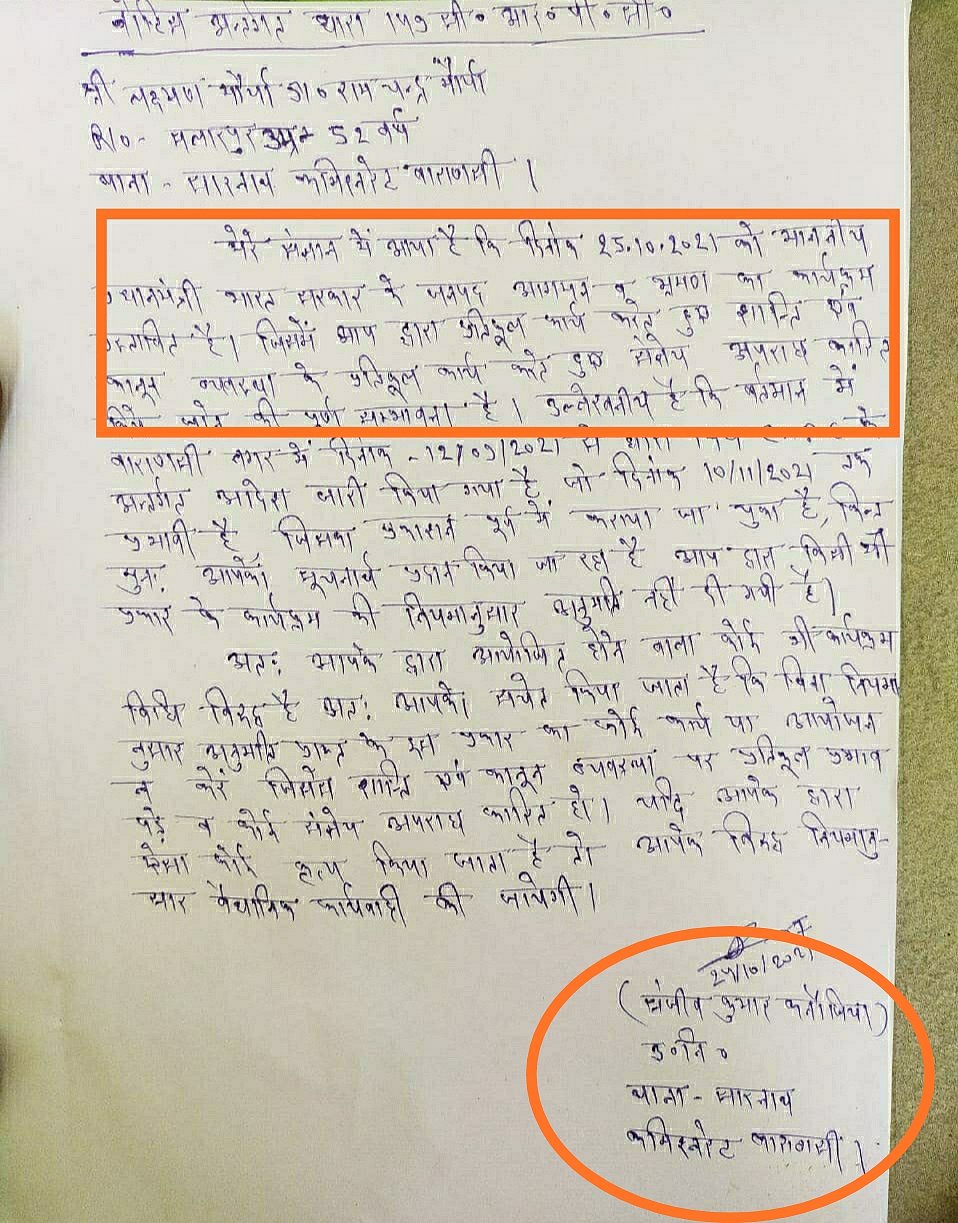 नोटिस अन्तर्गत धारा 149 सी० आर० पी० सी०
श्री लक्ष्मण मौर्या S/o राम चन्द्र मौर्या
R/o - उम्र - 52 वर्ष
थाना - सारनाथ कमिश्नरेट वाराणसी ।
मेरे संज्ञान में आया है कि दिनांक 25.10.2021 को माननीय
प्रधानमंत्री भारत सरकार के जनपद आगमन व भ्रमण का कार्यक्रम
प्रस्तावित है। जिसमें आप द्वारा प्रतिकूल कार्य करते हुए शान्ति एवं
कानून व्यवस्था के प्रतिकूल कार्य करते हुए संज्ञेय अपराध कारित
किये जाने की पूर्ण सम्भावना है। उल्लेखनीय है कि वर्तमान में
वाराणसी नगर में दिनांक - 12/09/2021 से धारा के
अन्तर्गत आदेश जारी किया गया है जो दिनांक 10/11/2021 तक
प्रभावी है, जिसका प्रकाशन पूर्व में कराया जा चुका है, किन्तु
पुनः आपको सूचनार्थ प्रदान किया जा रहा है आप द्वारा किसी भी
प्रकार के कार्यक्रम की नियमानुसार अनुमति नहीं दी गयी है।
अतः आपके द्वारा आयोजित होने वाला कोई भी कार्यक्रम
विधि विरुद्ध है अतः आपको सचेत किया जाता है कि बिना नियमा
नुसार अनुमति प्राप्त के इस प्रकार का कोई कार्य या आयोजन
न करें जिससे शान्ति एवं कानून व्यवस्था पर प्रतिकूल प्रभाव
पड़े व कोई संज्ञेय अपराध कारित हो। यदि आपके द्वारा
ऐसा कोई कृत्य किया जाता है तो आपके विरुद्ध नियमानु-
सार वैधानिक कार्यवाही की जायेगी।
24/10/2021
(संजीव कुमार कनौजिया)
उ०नि०
थाना - सारनाथ
कमिश्नरेट वाराणसी।